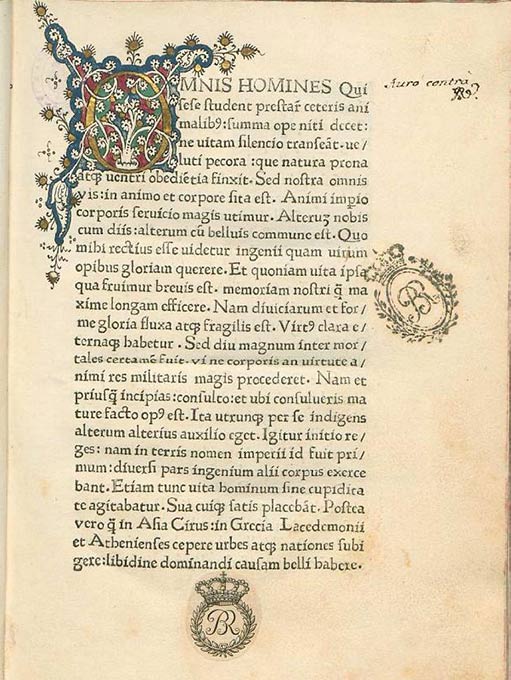 OMNIS HOMINES Qui
sese student prestar̄ ceteris ani
malib9:summa ope niti decet:
ne uitam silencio transeāt.ue/
luti pecora :que natura prona
atqȝ uentri obediētia finxit. Sed nostra omnis
vis:in animo et corpore sita est. Animi impio
corporis seruicio magis utimur. Alteruȝ nobis
cum diis:alterum cū belluis commune est. Quo
mihi rectius esse uidetur ingenii quam uirium
opibus gloriam querere. Et quoniam uita ipsa
qua fruimur breuis est. memoriam nostri q̄ ma
xime longam efficere. Nam diuiciarum et for/
me gloria fluxa atqȝ fragilis est. Virt9 clara e/
ternaqȝ habetur . Sed diu magnum inter mor/
tales certamē fuit. vi ne corporis an virtute a/
nimi res militaris magis procederet. Nam et
priusq̄ incipias:consulto:et ubi consulueris ma
ture facto op9 est. Ita utrunqȝ per se indigens
alterum alterius auxilio eget. Igitur initio re/
ges: nam in terris nomen imperii id fuit pri/
mum:diuersi pars ingenium alii corpus exerce
bant. Etiam tunc uita hominum sine cupidita
te agitabatur. Sua cuiqȝ satis placebāt. Postea
vero q̄ in Asia Cirus: in Grecia Lacedemonii
et Athenienses cepere urbes atqȝ nationes subi
gere:libidine dominandi causam belli habere.
Auro contra
BR
BR